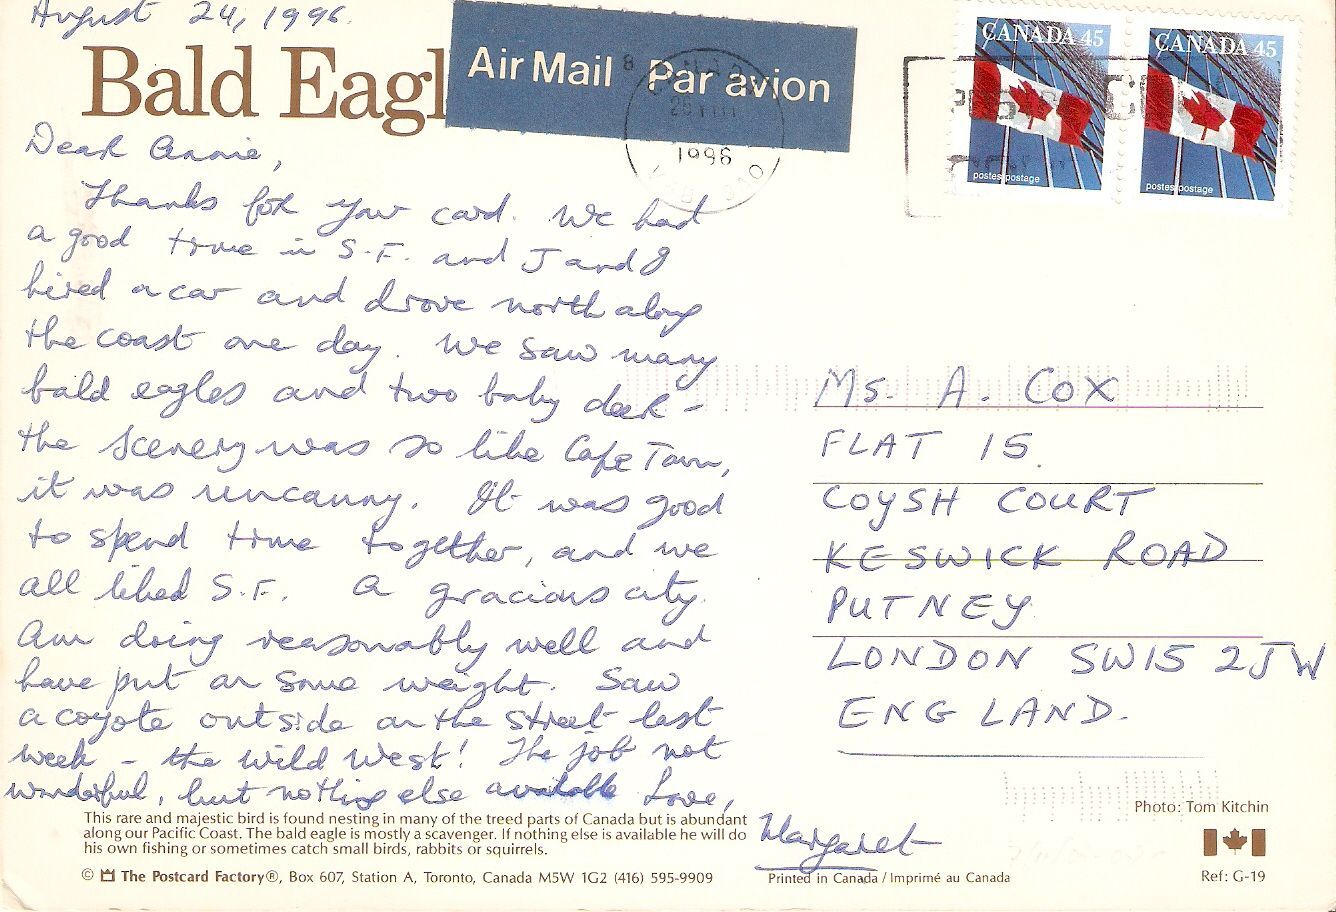 August 24, 1996.
Bald Eagl
Air Mail Par avion
1996
CANADA 45
postes postage
CANADA 45
postes postage
Dear Annie,
Thanks for your card. We had
a good time in S.F. and J and I
hired a car and drove north along
the coast one day. We saw many
bald eagles and two baby deer -
the scenery was so like Cape Town,
it was uncanny. It was good
to spend time together, and we
all liked S.F. A gracious city.
Am doing reasonably well and
have put on some weight. Saw
a coyote outside on the street last
week - the wild west! The job not
wonderful, but nothing else available Love,
Margaret
Ms. A. COX
FLAT 15.
COYSH COURT
KESWICK ROAD
PUTNEY
LONDON SW15 2JW
ENGLAND.
This rare and majestic bird is found nesting in many of the treed parts of Canada but is abundant
along our Pacific Coast. The bald eagle is mostly a scavenger. If nothing else is available he will do
his own fishing or sometimes catch small birds, rabbits or squirrels.
© The Postcard Factory®, Box 607, Station A, Toronto, Canada M5W 1G2 (416) 595-9909
Printed in Canada / Imprimé au Canada
Photo: Tom Kitchin
Ref: G-19